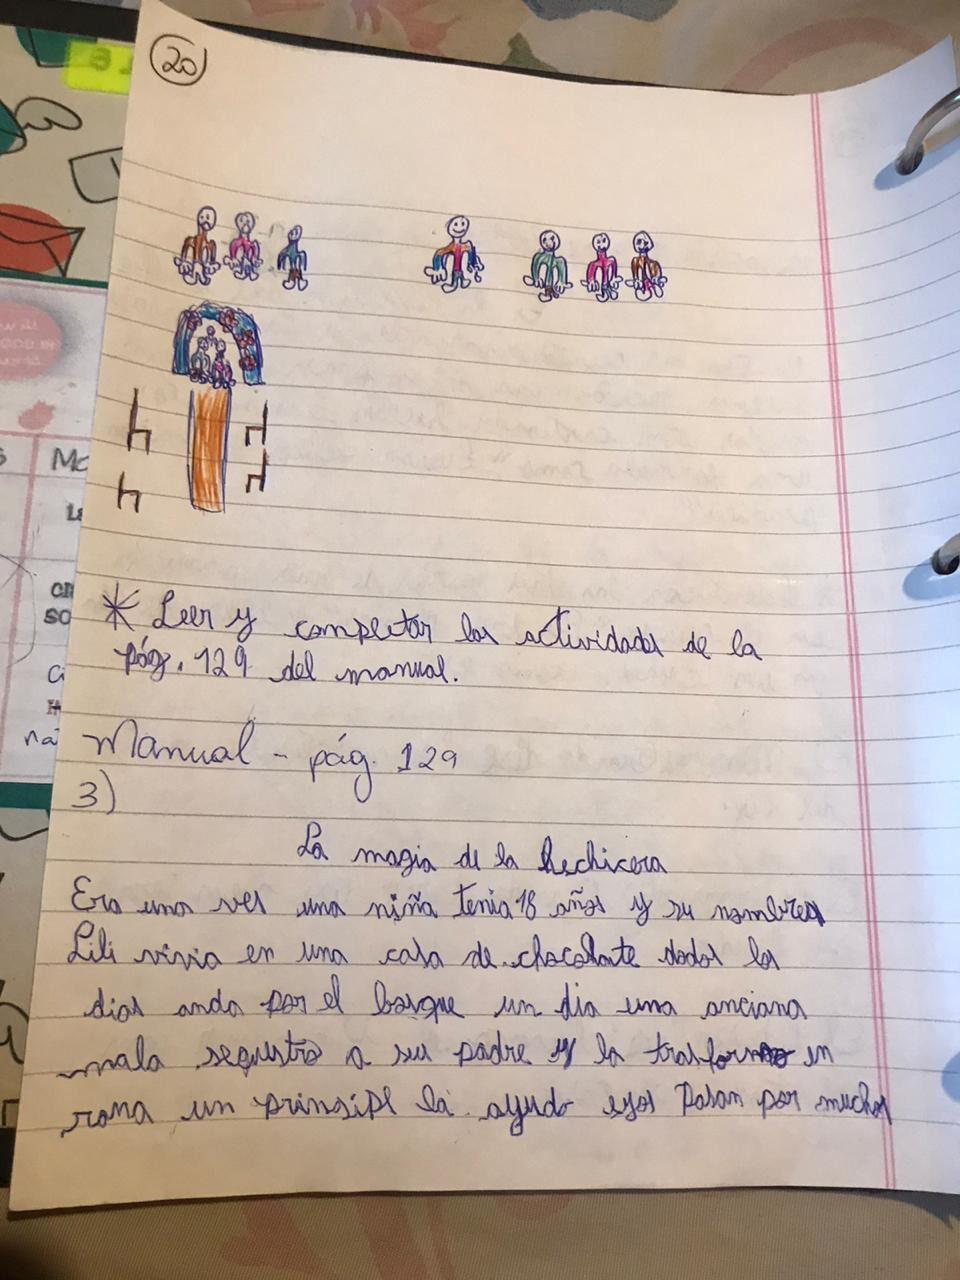 20
* Leer y completar las actividades de la
pág. 129 del manual.
Manual - pág. 129
3)
La magia de la hechicera
Era una ves una niña tenia 18 años y su nombre
Lili vivia en una casa de chocolante dodos los
dias anda por el bosque un dia una anciana
mala sequstro a su padre y la trasformo en
rana un prinsipe la ayudo eyos pasan por muchos
Mc